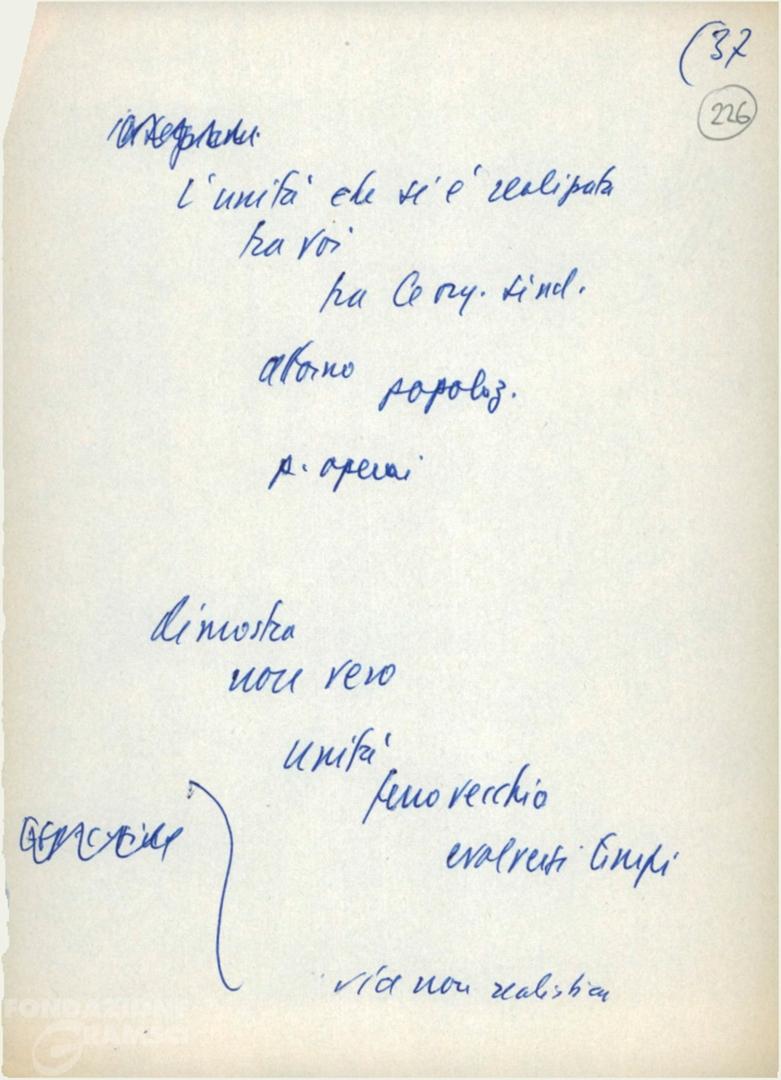 (37
226
l'unità che si è realizzata
tra voi
tra le org. sind.
attorno popolaz.
p. operai
dimostra
non vero
unità
ferrovecchio
evolversi tempi
via non realistica
FONDAZIONE
GRAMSCI